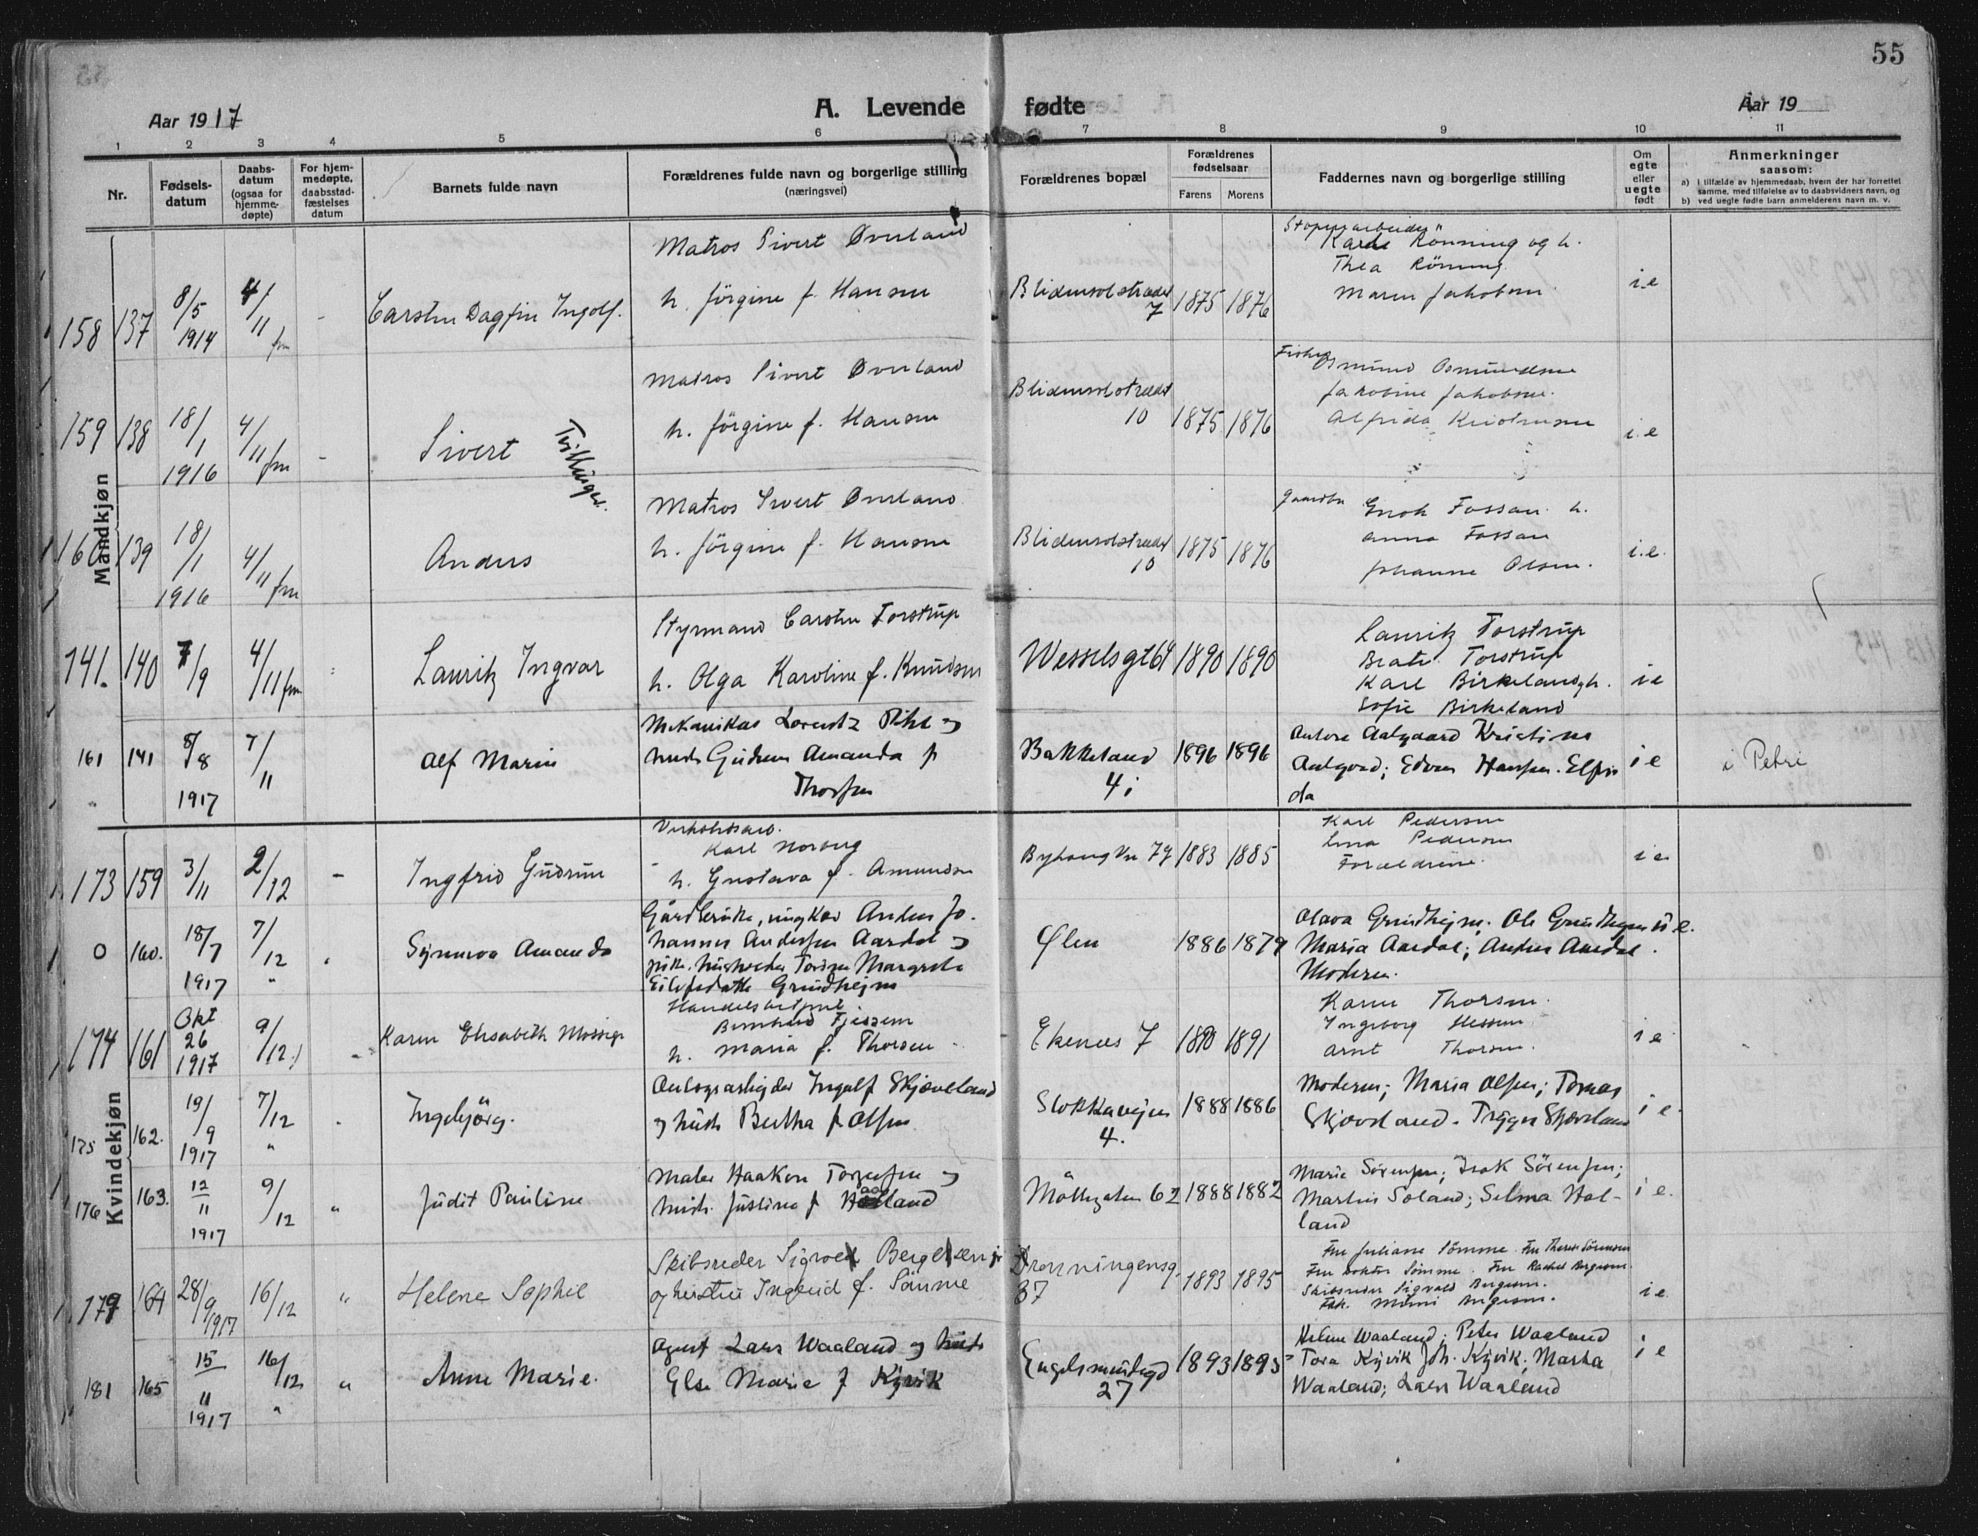 55
Aar 1917 A. Levende fødte Aar 19
1 2 3 4 5 6 7 8 9 10 11
Nr. Fødsels-datum Daabs-datum (ogsaa for hjemme-døpte) For hjem-medøpte, daabsstad-fæstelses datum Barnets fulde navn Forældrenes fulde navn og borgerlige stilling (næringsvei) Forældrenes bopæl Forældrenes fødselsaar Farens Morens Faddernes navn og borgerlige stilling Om egte eller uegte født Anmerkninger saasom:
a) i tilfælde av hjemmedaab, hvem der har forrettet samme, med tilføielse av to daabsvidners navn, og
b) ved uegte fødte barn anmelderens navn m. v.
Mandkjøn
158 137 8/5 1914 4/11 fm - Carsten Dagfin Ingolf.
Matros Sivert Øverland
h. Jörgine f. Hansen
Blidensolstrædet 7 1875 1876
Rönning og h.
Thea Rönning
Maren Jakobsen
i e
159 138 18/1 1916 4/11 fm - Sivert Tvillinger.
Matros Sivert Øverland
h. Jörgine f. Hansen
Blidensolstrædet 10 1875 1876
Fisker Osmund Osmundsen
Jakobine Jakobsen.
Alfrida Kristensen
i. e
160 139 18/1 1916 4/11 fm Anders
Matros Sivert Øverland
h. Jörgine f. Hansen
Blidensolstrædet 10 1875 1876
Enok Fossan h.
Anna Fossan
Johanne Olsen.
i. e.
141. 140 7/9 4/11 fm Lauritz Ingvar
Styrmand Carsten Torstrup
h. Olga Karoline f. Knudsen
Wesselsgt 64 1890 1890
Lauritz Torstrup
Beate Torstrup
Karl Birkeland og h.
Sofie Birkeland
i e
161 141 8/8 1917 7/11 Alf Marin
Mekanikas Lorentz Pihl og
hust. Gudrun Amanda f
Thorsen
Bakkeland 4 1896 1896
Antore Aalgaard Kristine
Aalgaard; Edvar Hansen. Elfri
da
i e i Petri
Kvindekjøn
173 159 3/11 2/12 - Ingfrid Gudrun
Karl Norberg
h. Gustava f. Amundsen
79 1883 1885
Karl Pedersen
Lina Pedersen
Forældrene.
i e
0 160. 18/7 1917 7/12 " Synnøva Amanda
Gårdbruker, ungkar Anders Jo-
hannes Andersen Aardal og
pike, Margreta
Eilefsdatter Grindhejm
Ølen 1886 1879
Olava Grindhejm. Ole Grindhejm
Maria Aardal; Anders Aardal.
Moderen.
u e.
174 161 Okt 26 1917 9/12 " Karen Elisabeth Mossige
Bernhard Tjessem
h. Maria f. Thorsen
Ekenes 7 1890 1891
Karen Thorsen.
Ingeborg Stessen
Arnt Thorsen.
i e
175 162. 19/9 1917 7/12 " Ingebjörg.
Ingolf Skjæveland
og hust. Bertha f Olsen
Stokkavejen 4. 1888 1886
Moderen; Maria Olsen; Tomas
Skjæveland. Trygve Skjæveland
i e.
176 163. 12/11 1917 9/12 " Judit Pauline
Maler Haakon Torgersen og
hust. Justine f Haaland
Möllegaten 62 1888 1882
Marie Sörensen; Isak Sörensen;
Martin Soland; Selma Hal-
land
i e.
179 164 28/9 1917 16/12 " Helene Sophie
Skibsreder Sigvald Bergesen jr
og hustru Ingerid f. Sömme
Dronningensg. 37 1893 1895
Fru Juliane Sömme. Fru Therese Sörensen
Fru Doktor Sömme. Fru Rachel Bergesen.
Skibsreder Sigvald Bergesen.
Frk. Mimi Bergesen.
i e
181 165 15/11 1917 16/12 " Anne Marie.
Agent Lars Waaland og hust.
Else Marie f Kyvik
Engelsmindegt 27 1893 1893
Helene Waaland; Peter Waaland
Tora Kyvik Joh. Kyvik; Marta
Waaland; Lars Waaland
i e